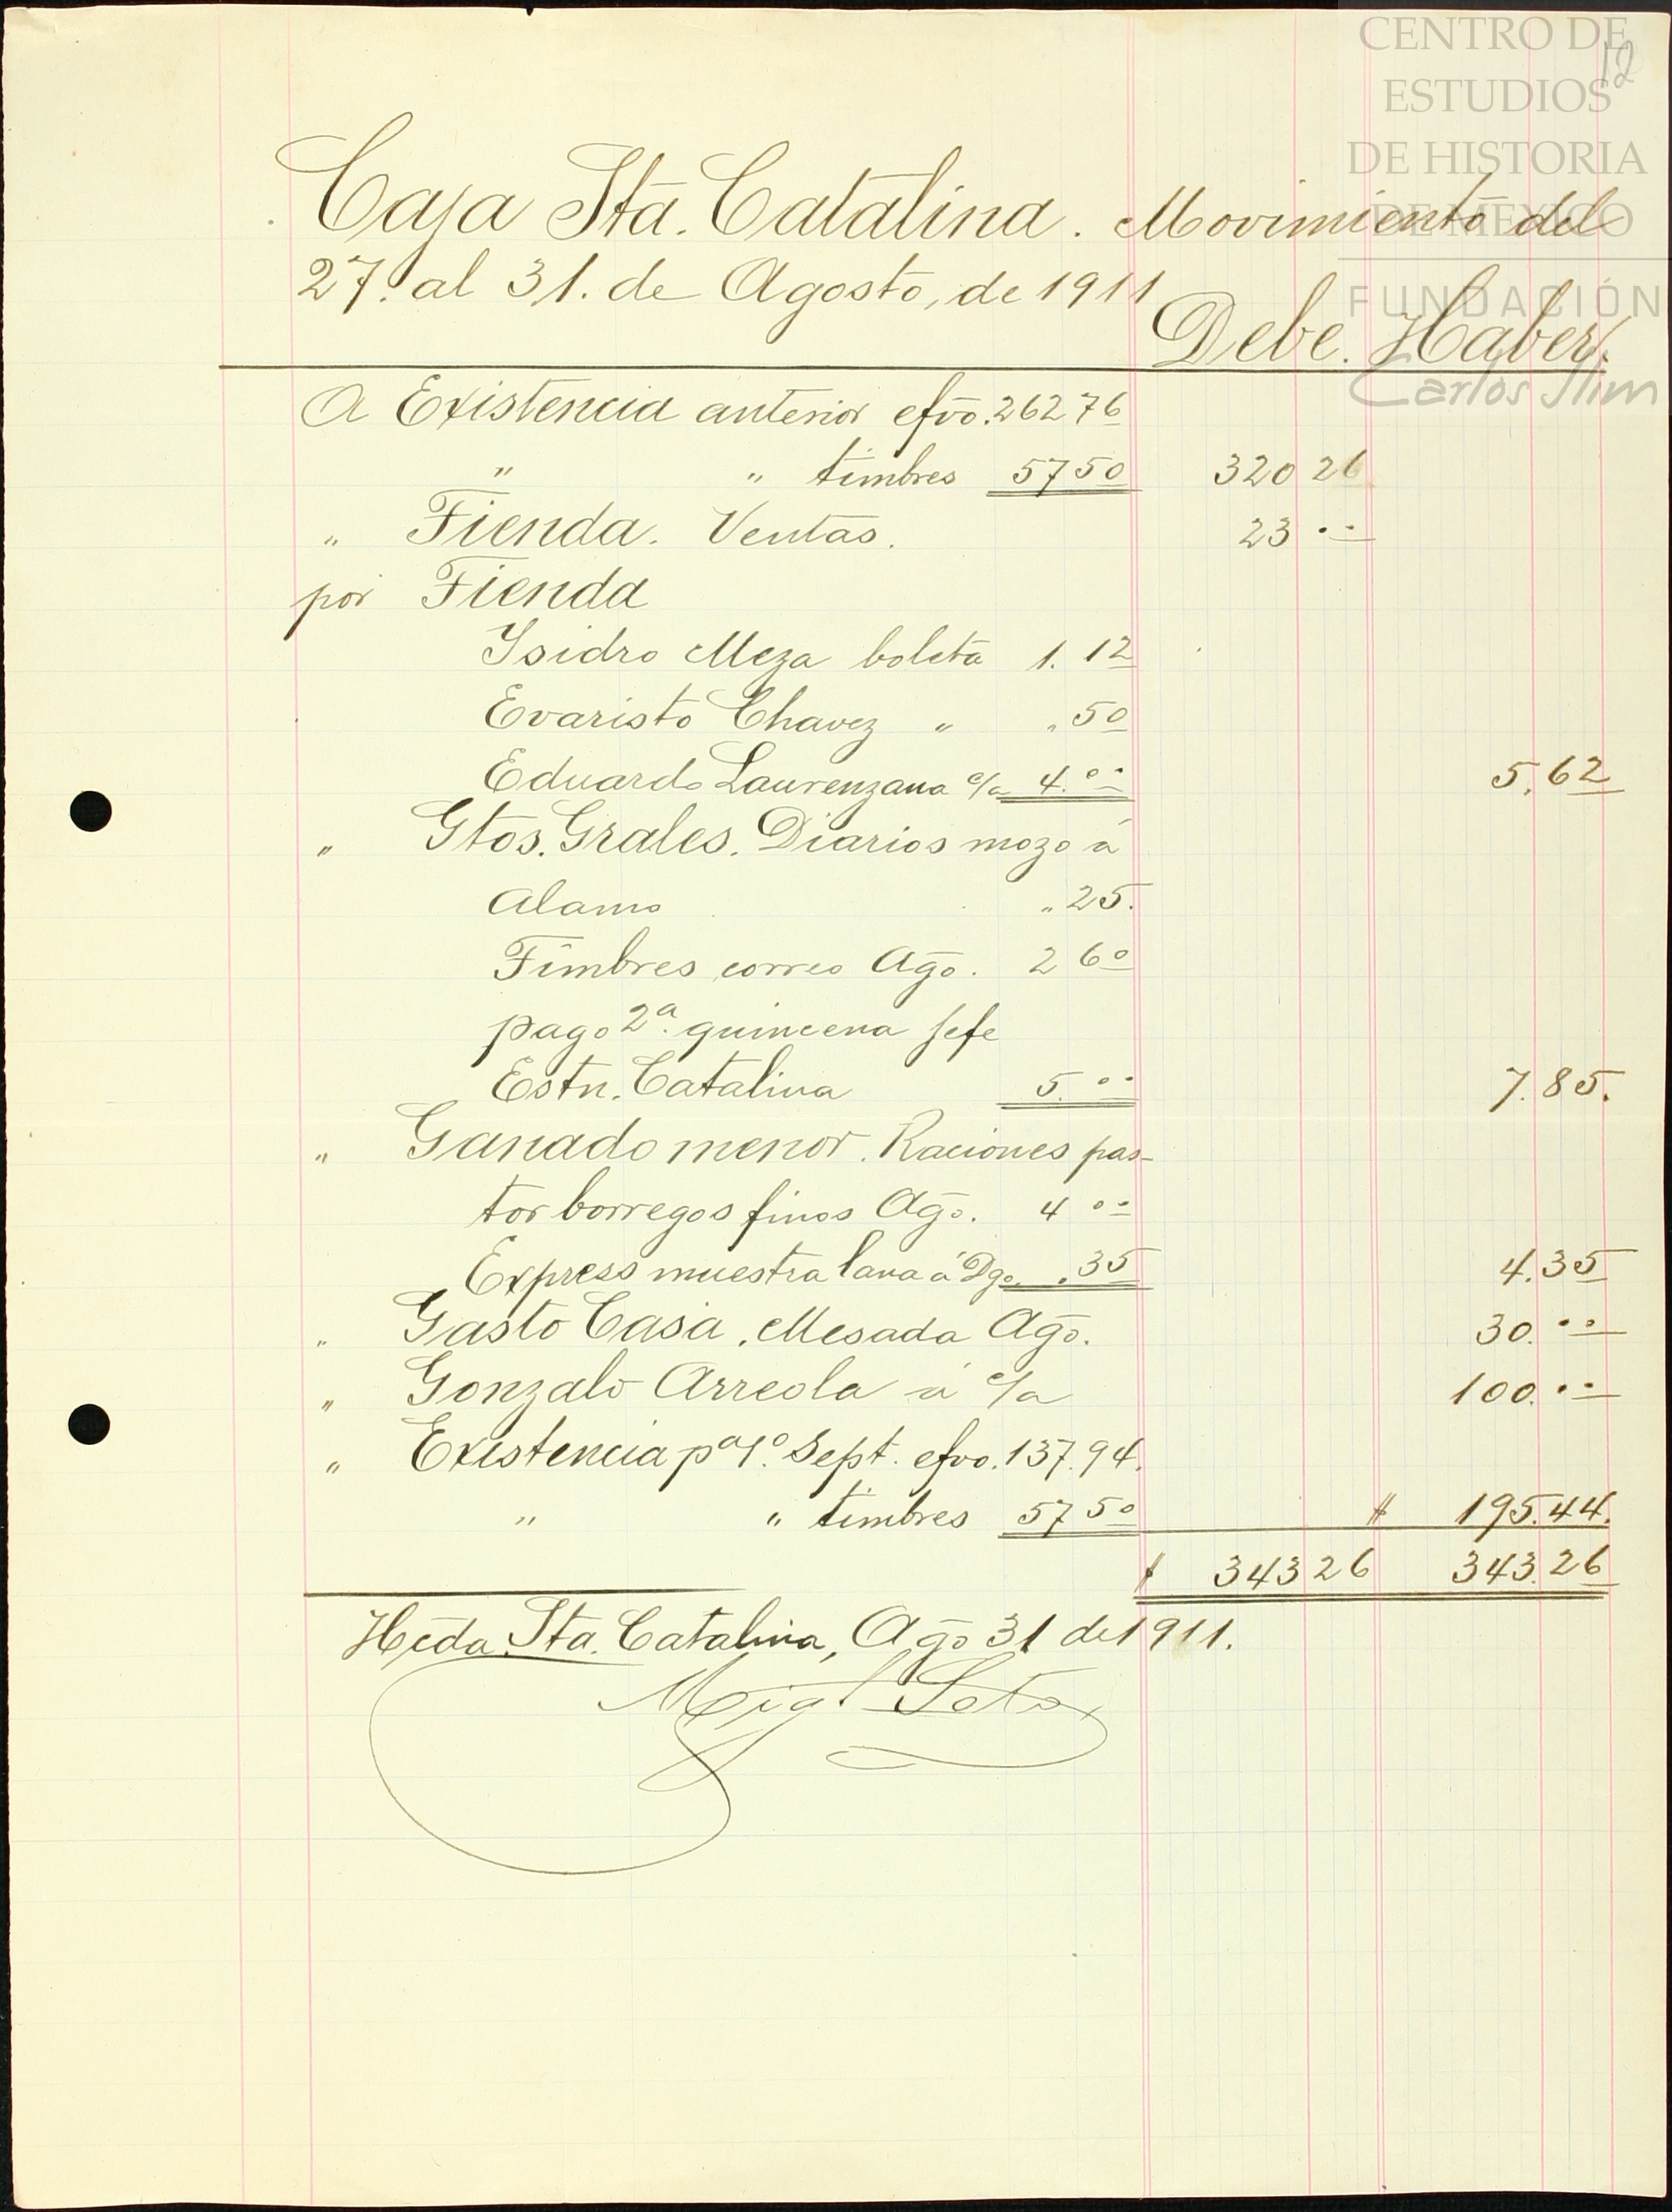 CENTRO DE
ESTUDIOS
DE HISTORIA
DE MÉXICO
FUNDACIÓN
Carlos Slim
12
Caja Sta. Catalina. Movimiento del
27. al 31. de Agosto, de 1911
Debe. Haber.
A Existencia anterior efvo. 262 76
" " timbres 57 50 320 26
" Tienda. Ventas. 23 ..
por Tienda
Isidro Meza boleta 1. 12
Evaristo Chavez " " 50
Eduardo Laurenzana c/a 4. .. 5.62
" Gtos. Grales. Diarios mozo á
Alamo " 25.
Timbres correo Ago. 2 60
pago 2ª. quincena Jefe
Estn. Catalina 5. .. 7.85.
" Ganado menor. Raciones pas-
tor borregos finos Ago. 4 ..
Express muestra lana á Dgo. .35 4.35
" Gasto Casa. Mesada Ago. 30. ..
" Gonzalo Arreola á c/a 100. ..
" Existencia pª 1º. Sept. efvo. 137.94.
" " timbres 57 50 $ 195.44.
$ 343 26 343.26
Hcda. Sta. Catalina, Ago 31 de 1911.
Migl Soto